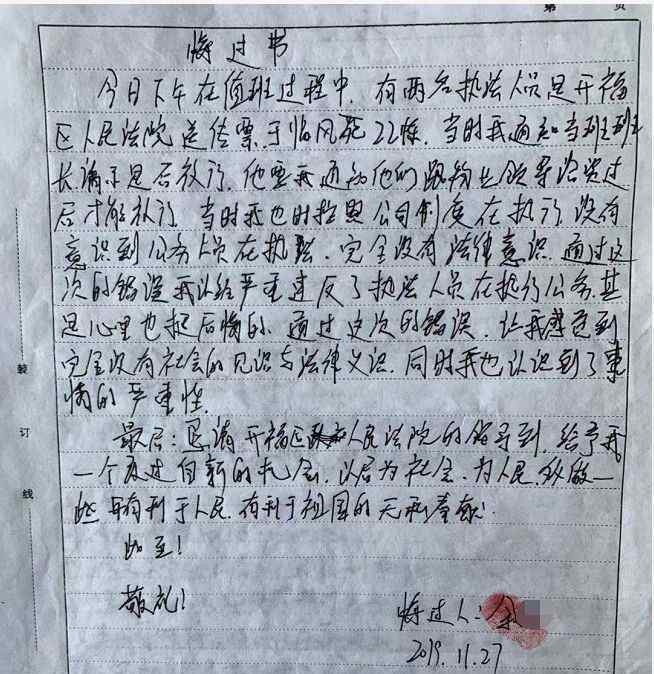 第 页
悔过书
今日下午在值班过程中，有两名执法人员是开福
区人民法院送传票，于临风苑22栋，当时我通知当班班
长请示是后放行，他要我通知他们跟物业领导沟通过
后才能放行，当时我也时按照公司制度在执行，没有
意识到公务人员在执法，完全没有法律意识，通过这
次的错误我以经严重违反了执法人员在执行公务，其
是心里也挺后悔的，通过这次的错误，让我感觉到
完全没有社会的见识与法律义识，同时我也认识到了事
情的严重性。
最后：恳请开福区人民法院的领导到，给予我
一个改过自新的机会，以后为社会，为人民，做一
些有利于人民，有利于祖国的无私奉献！
此至！
敬礼！
悔过人：余
2019.11.27
装
订
线